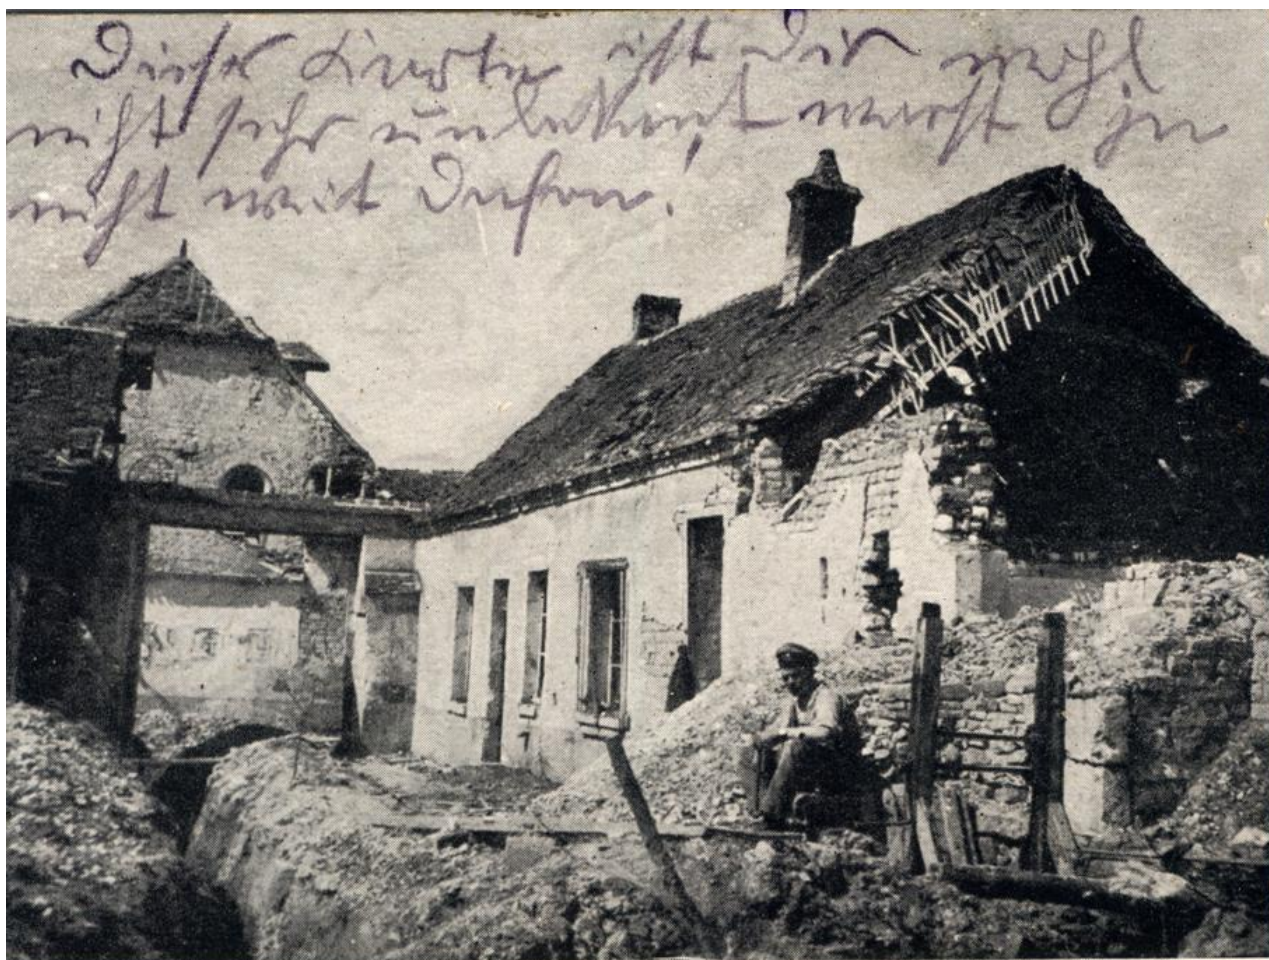 Diese Karte ist Dir wohl
nicht sehr unbekannt, warst ja
nicht weit davon!